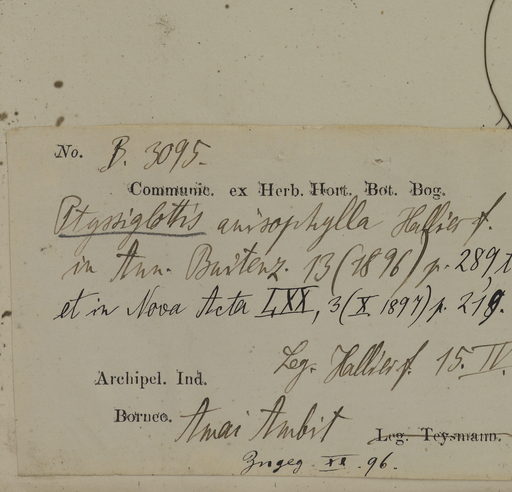 No. B. 3095.
Communic. ex Herb. Hort. Bot. Bog.
Ptyssiglottis anisophylla Hallier f.
in Ann. Buitenz. 13 (1896) p. 289, t
et in Nova Acta LXX, 3 (X 1897) p. 219.
Leg. Hallier f. 15. IV.
Archipel. Ind.
Borneo. Amai Ambit
Leg. Teysmann.
Zugeg. XI. 96.